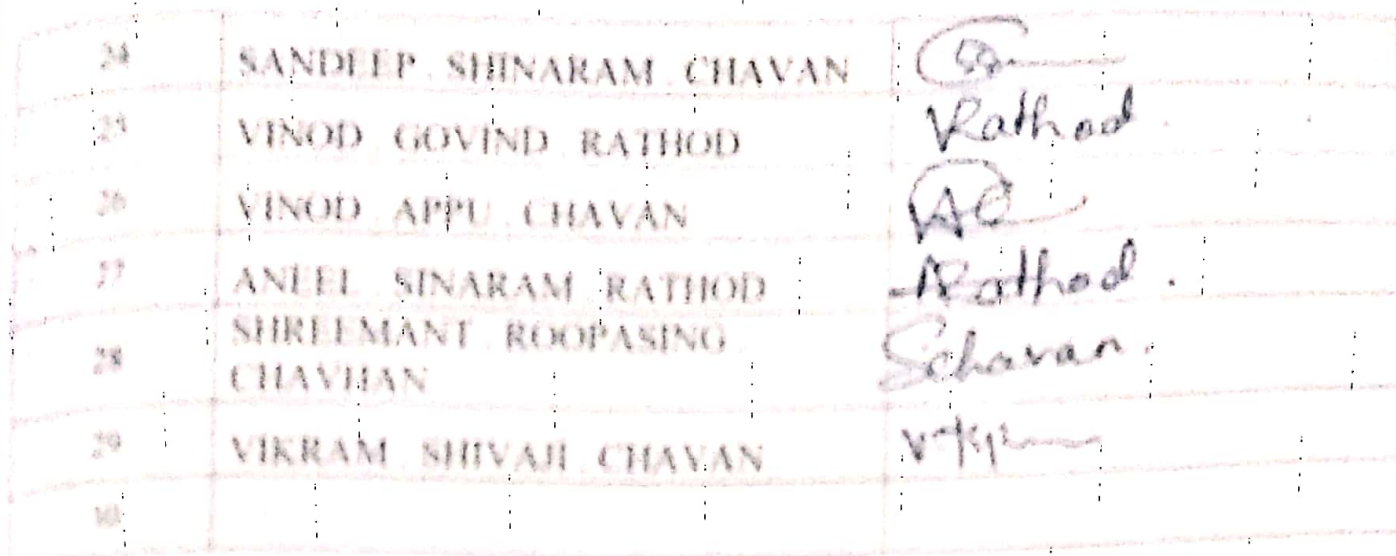 24 SANDEEP SHINARAM CHAVAN
25 VINOD GOVIND RATHOD VRathod
26 VINOD APPU CHAVAN VAC
27 ANEEL SINARAM RATHOD ARathod.
SHREEMANT ROOPASING
28 CHAVHAN Schavan.
29 VIKRAM SHIVAJI CHAVAN
30